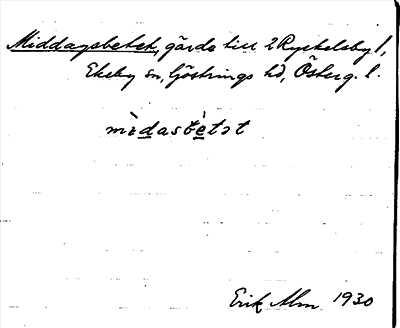 Middagsbetet, gärde till 2 Ryckelsby 1,
Ekeby sn, Göstrings hd, Österg. l.
mìdasbètət
Erik Alm 1930